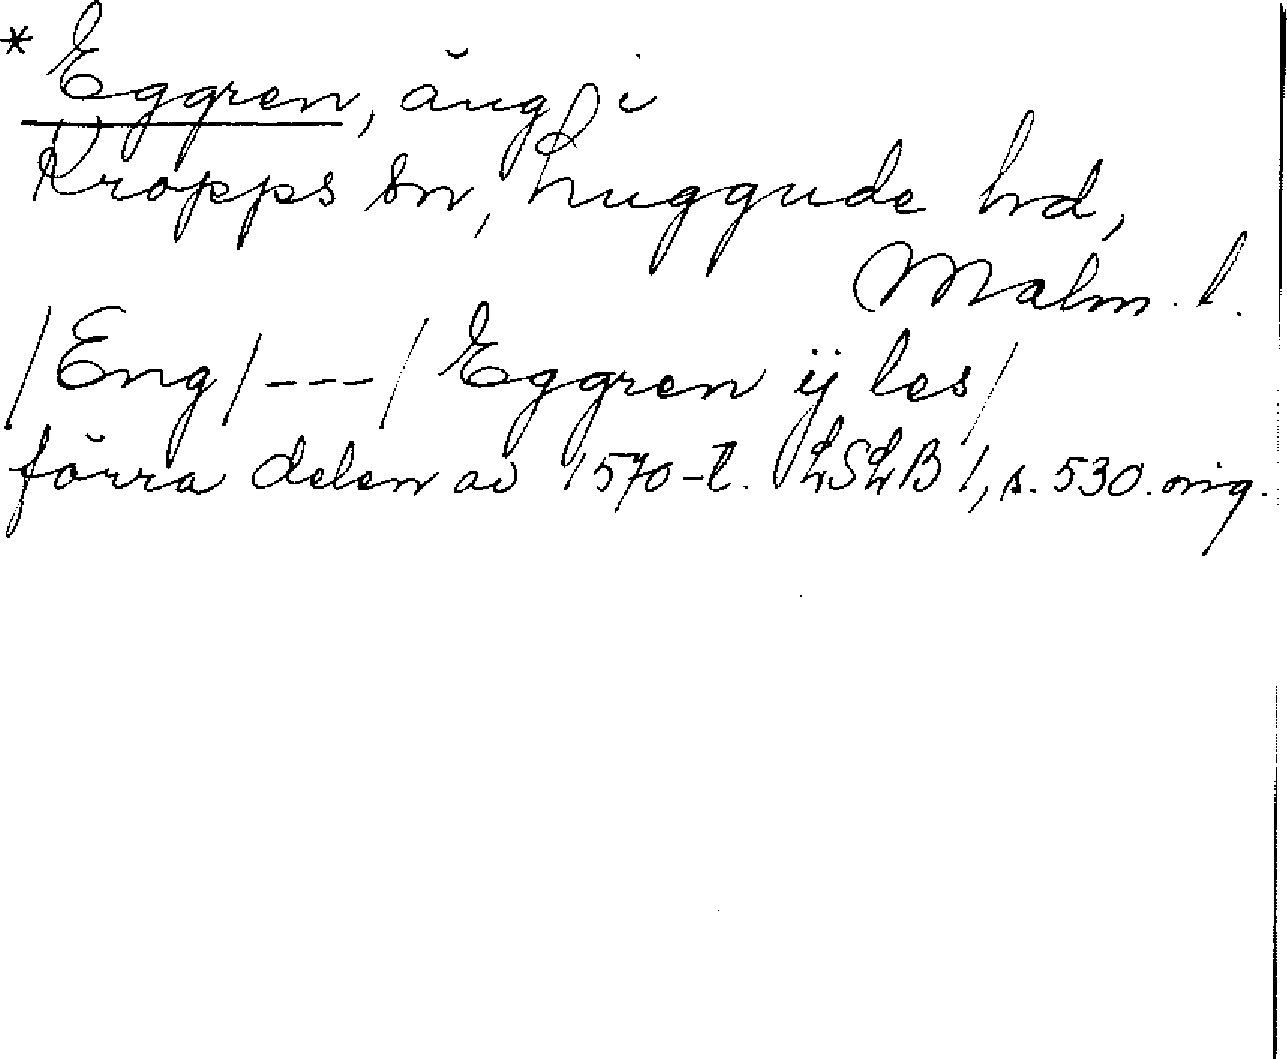 * Eggren, äng i
Kropps sn, Luggude hd,
Malm. l.
/Eng/---/Eggren ij les/
förra delen av 1570-t. LSLB 1, s. 530. orig.